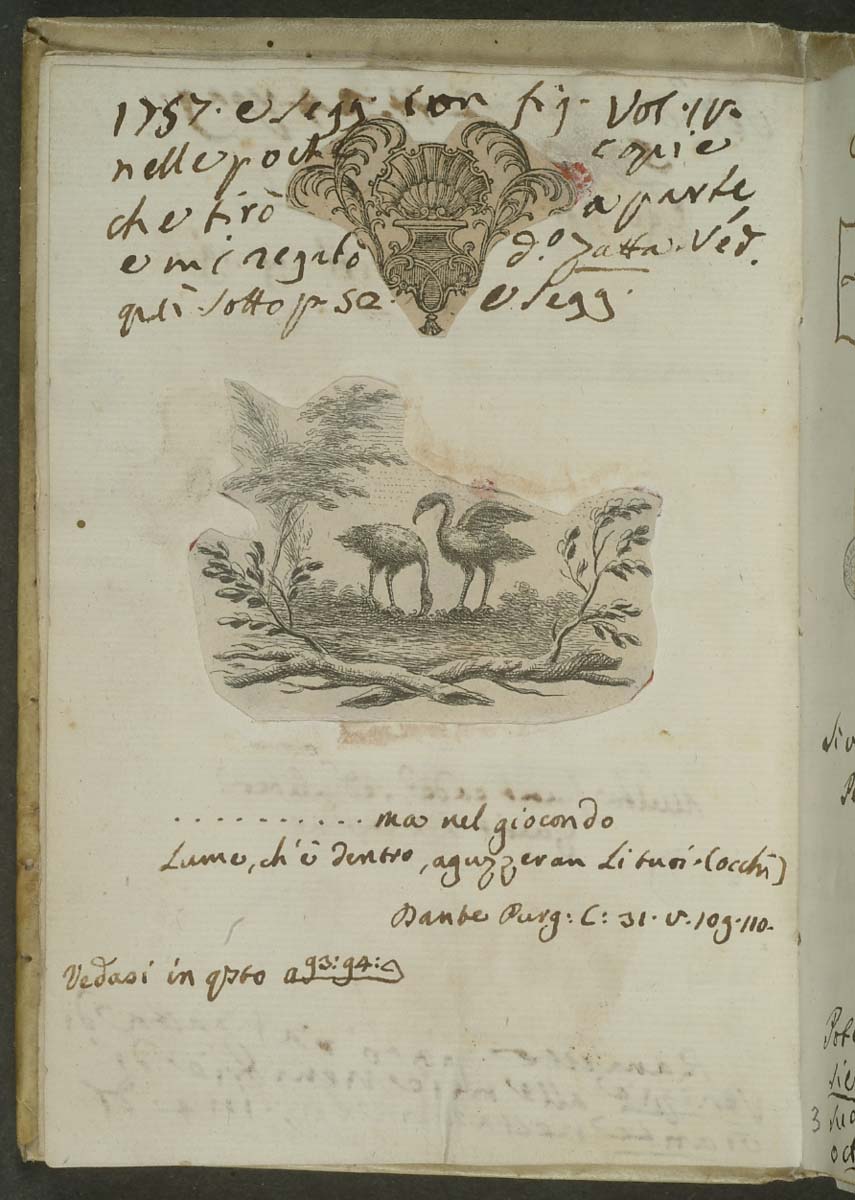 1757. e segg. con fig. Vol. IV.
nelle poche copie
che tirò a parte
e mi regalò d.º Zatta. Ved.
quì sotto p. 52. e segg.
. . . . . . . . . . ma nel giocondo
Lume, ch'è dentro, aguzzeran li tuoi. (occhi)
Dante Purg: C: 31. v. 109. 110.
Vedasi in qsto a 93: 94:
3